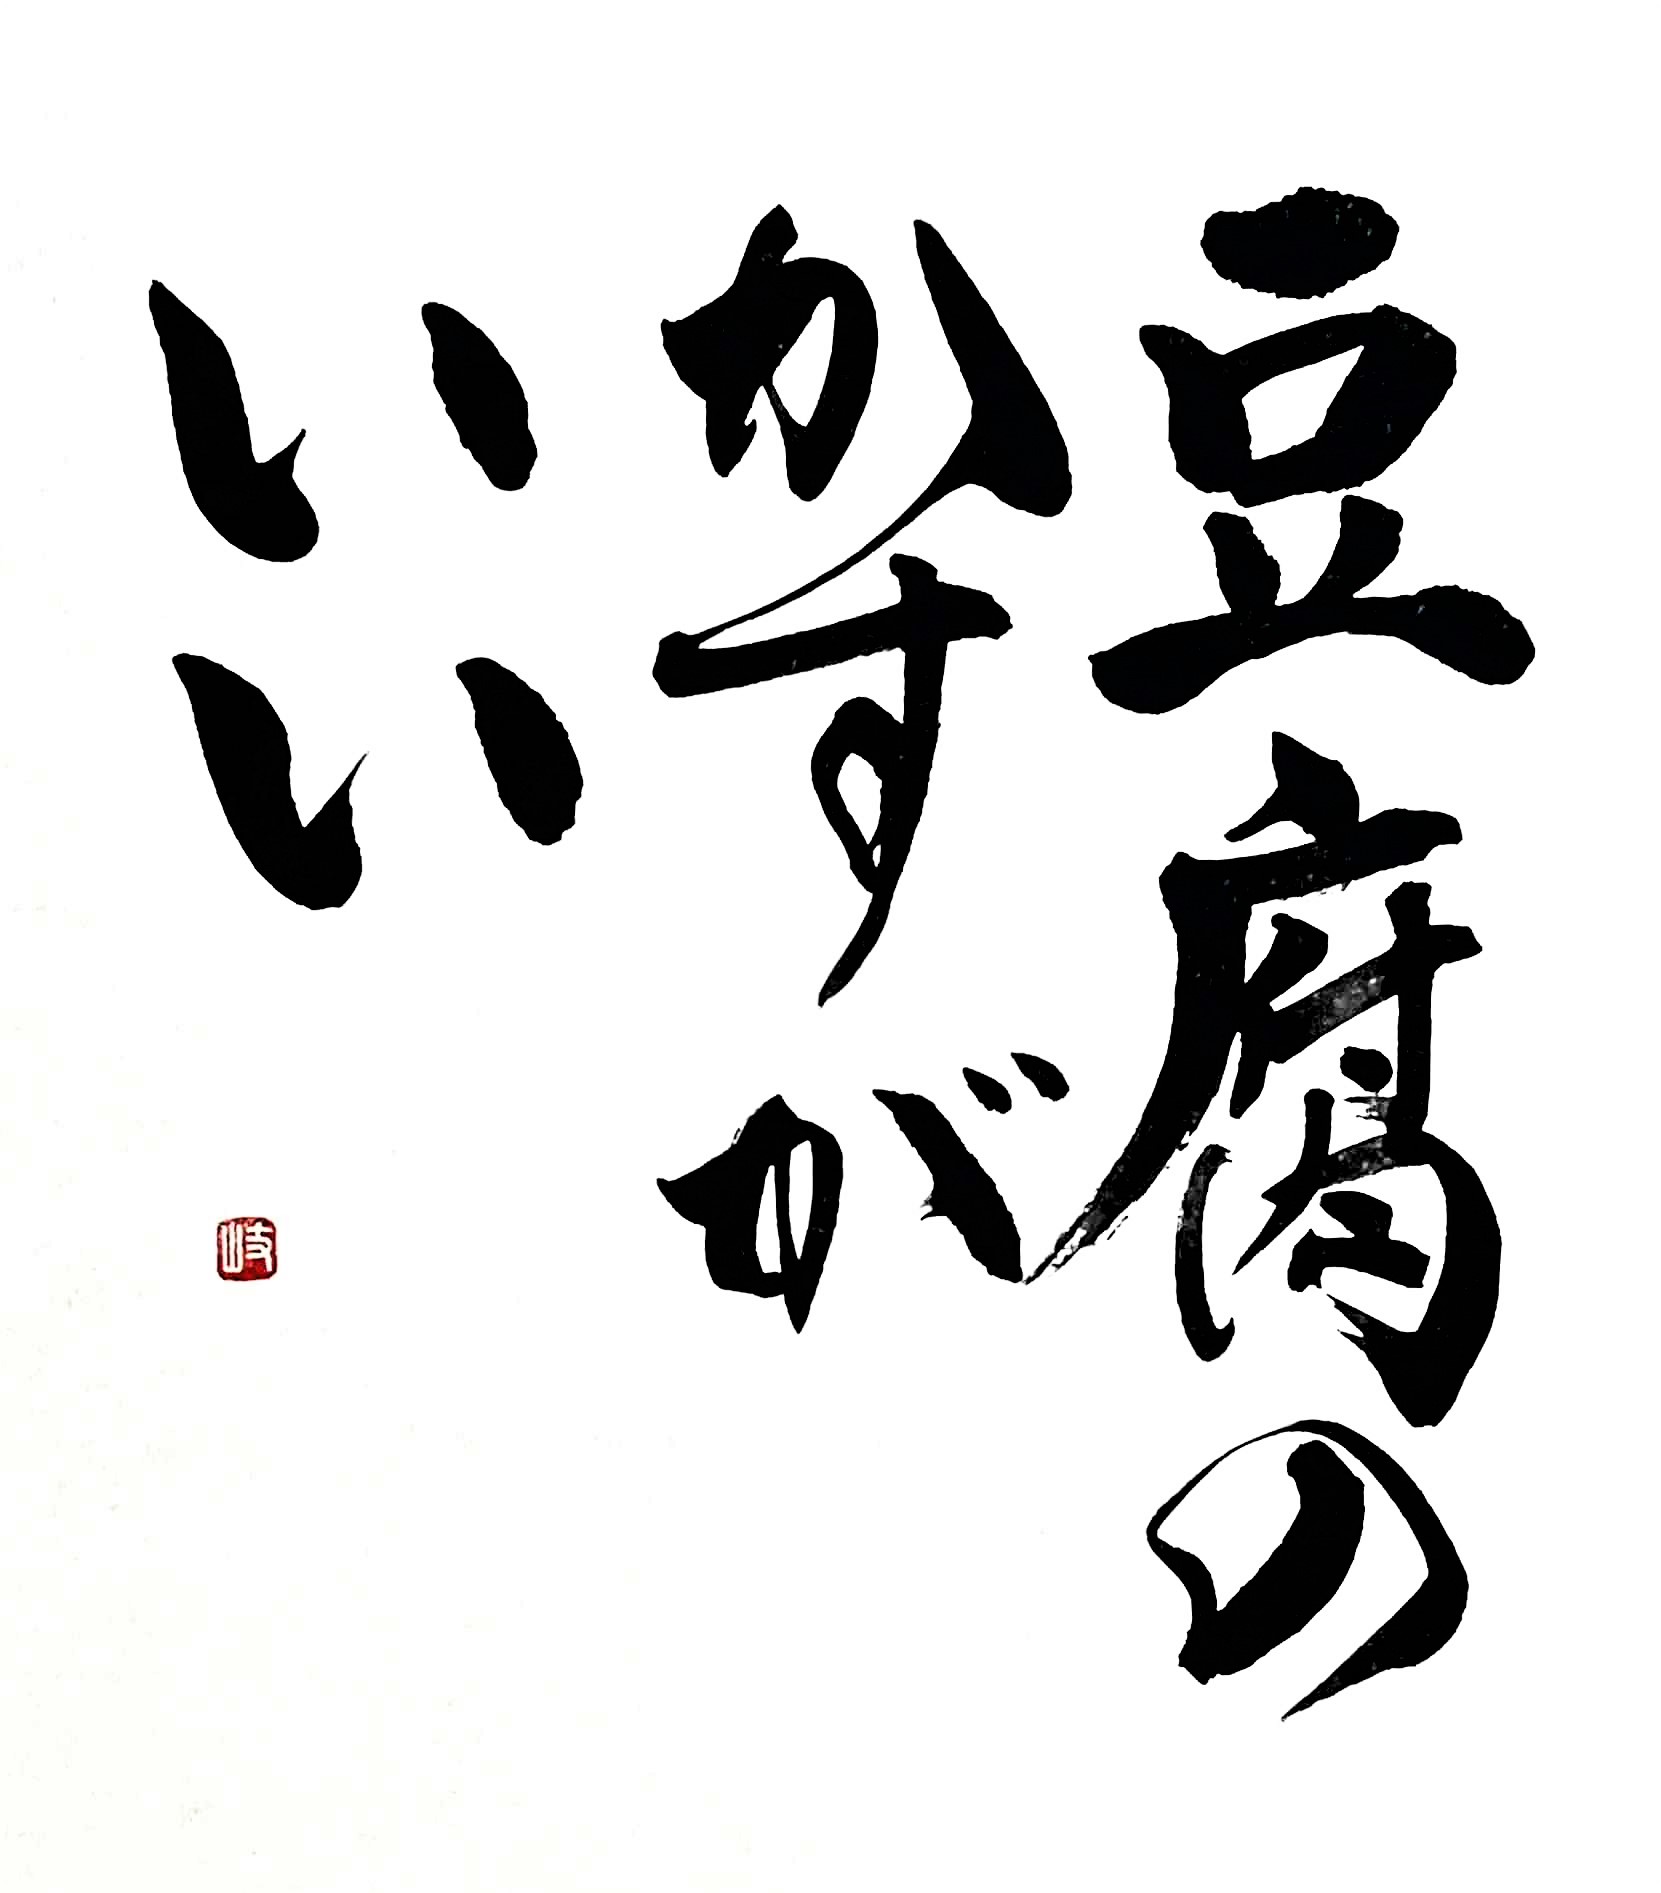 豆腐の
かすが
いい
岐